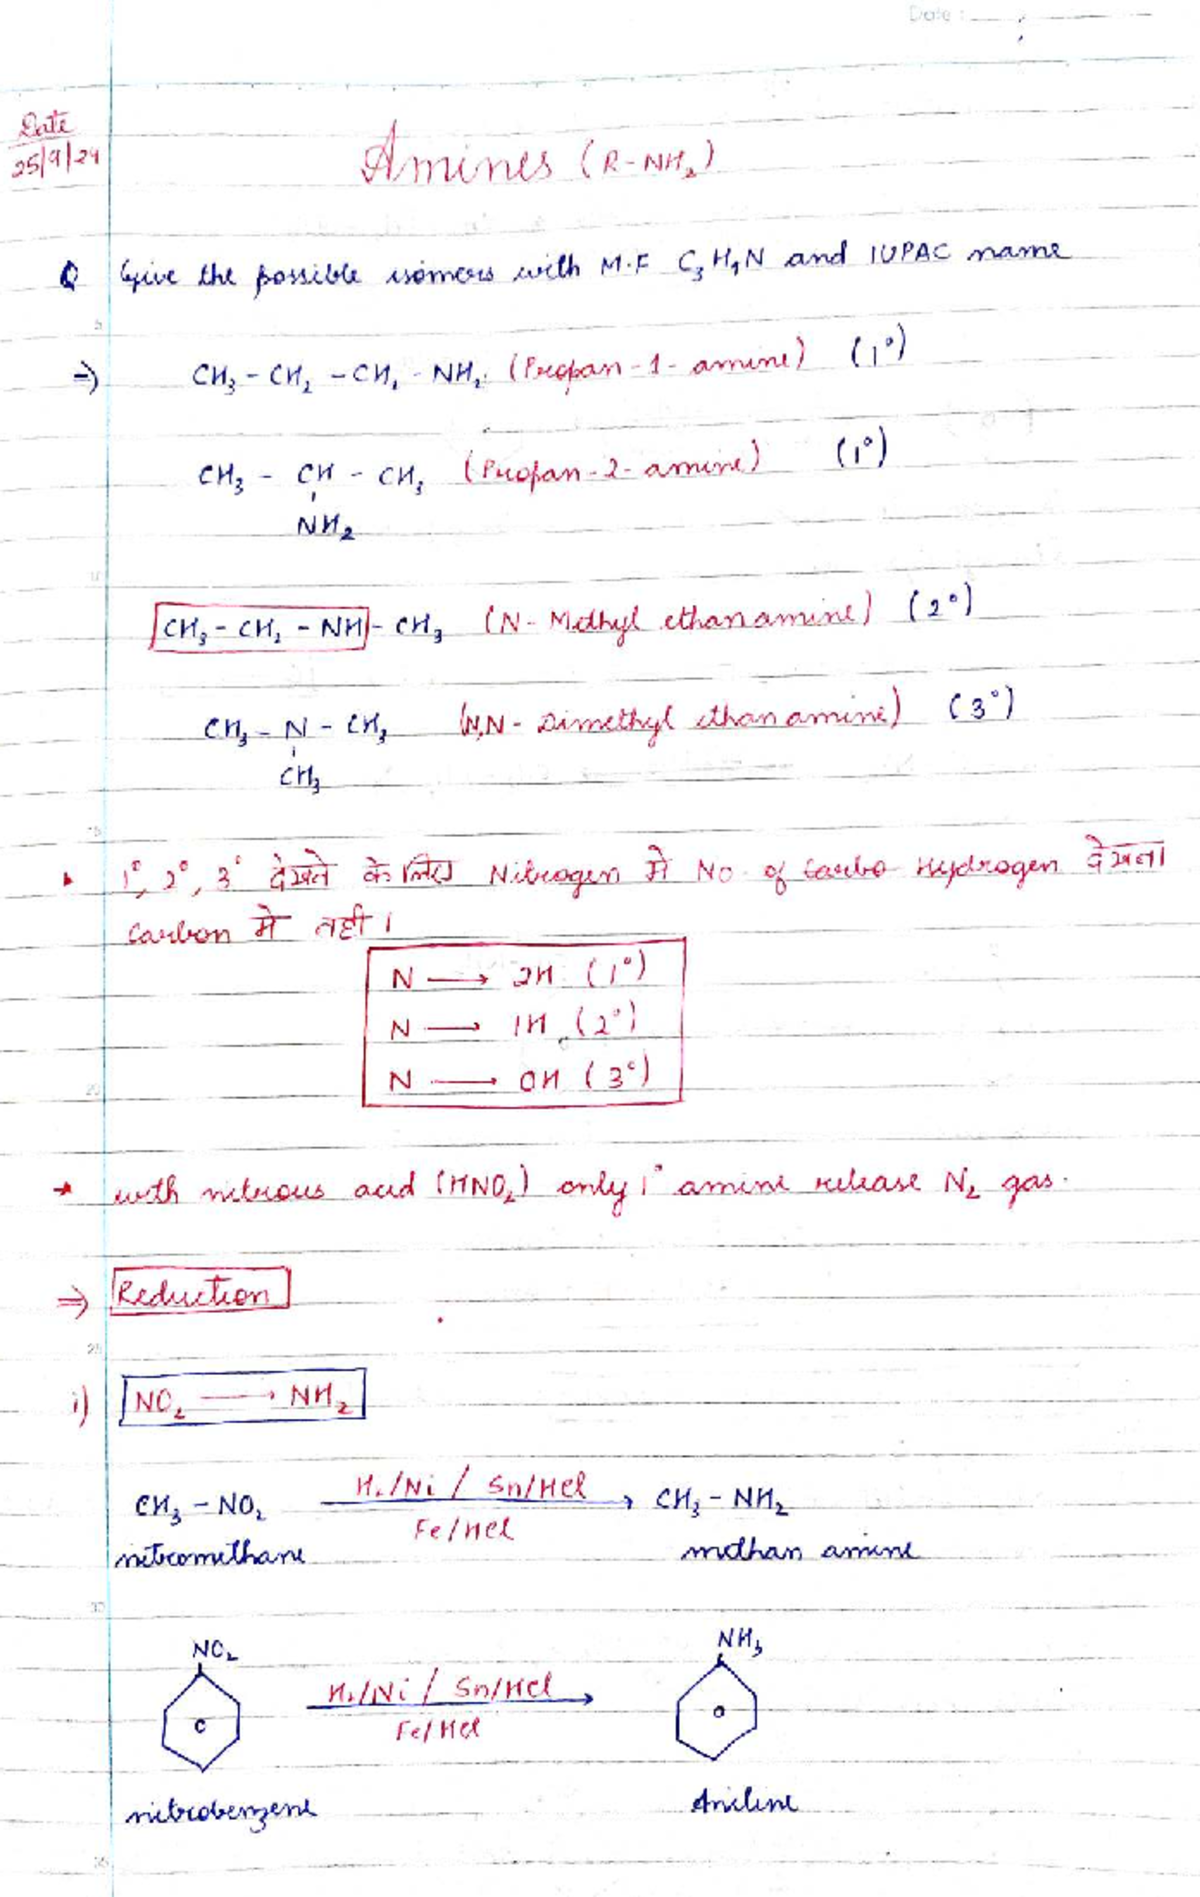 Date :
Date
25/9/24
Amines (R-NH₂)
Q Give the possible isomers with M.F C₃H₉N and IUPAC name
⇒) CH₃ - CH₂ - CH₂ - NH₂ (Propan-1-amine) (1°)
CH₃ - CH - CH₃ (Propan-2-amine) (1°)
NH₂
CH₃ - CH₂ - NH - CH₃ (N-Methyl ethanamine) (2°)
CH₃ - N - CH₃ (N,N-Dimethyl ethanamine) (3°)
CH₃
1°, 2°, 3° देखने के लिए Nitrogen में No. of Hydrogen देखना
Carbon में नहीं।
N → 2H (1°)
N → 1H (2°)
N → 0H (3°)
* with nitrous acid (HNO₂) only 1° amine release N₂ gas.
⇒ Reduction
i) NO₂ → NH₂
H₂/Ni / Sn/HCl
CH₃ - NO₂ → CH₃ - NH₂
Fe/HCl
nitromethane methan amine
NO₂ NH₃
H₂/Ni / Sn/HCl
Fe/HCl
nitrobenzene Aniline